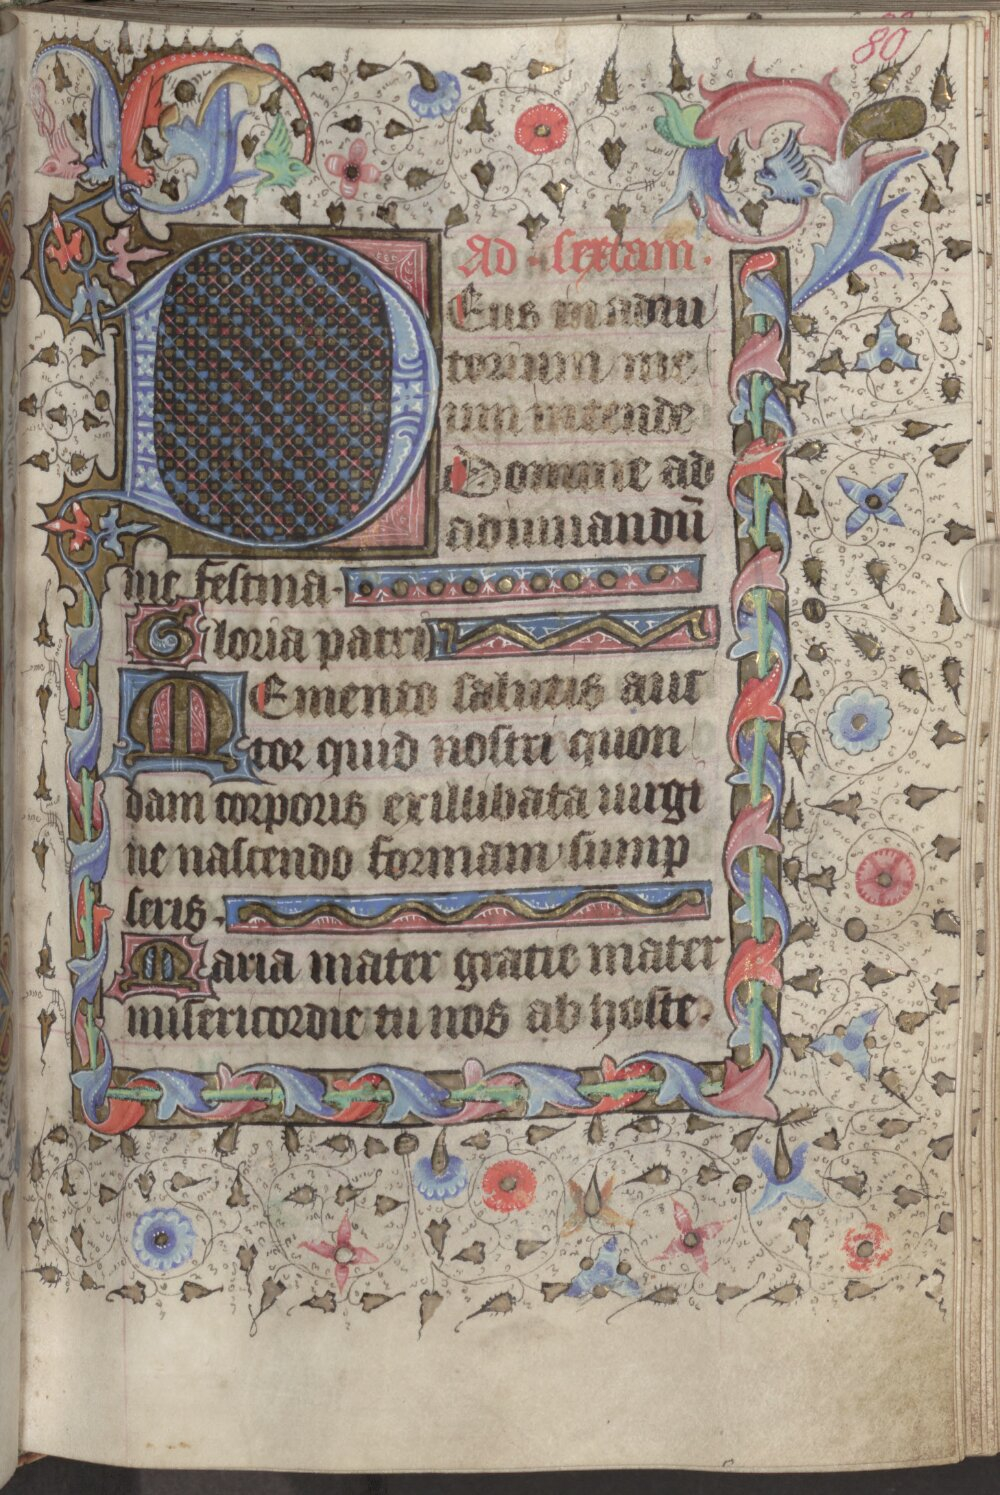 80
Ad sextam.
Deus in adiu
torium me
um intende
Domine ad
adiuuandū
me festina.
Gloria patri
Memento salutis auc
tor quid nostri quon
dam corporis exillibata uirgi
ne nascendo formam sump
seris.
Maria mater gratie mater
misericordie tu nos ab hoste.